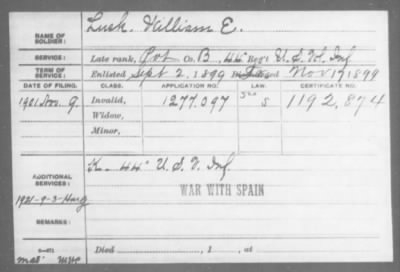 Lusk, William E.
NAME OF SOLDIER:
SERVICE: Late rank, Pvt Co. B, 44" Reg't U.S.V. Inf
TERM OF SERVICE: Enlisted Sept 2, 1899 Nov 17 1899
DATE OF FILING. CLASS. APPLICATION NO. LAW. CERTIFICATE NO.
1901 Nov. 9. Invalid, 1277.097 S 1192,874
Widow,
Minor,
ADDITIONAL SERVICES: K-44" U.S.V. Inf.
WAR WITH SPAIN
1921-9-3-
REMARKS:
Died , 1 , at